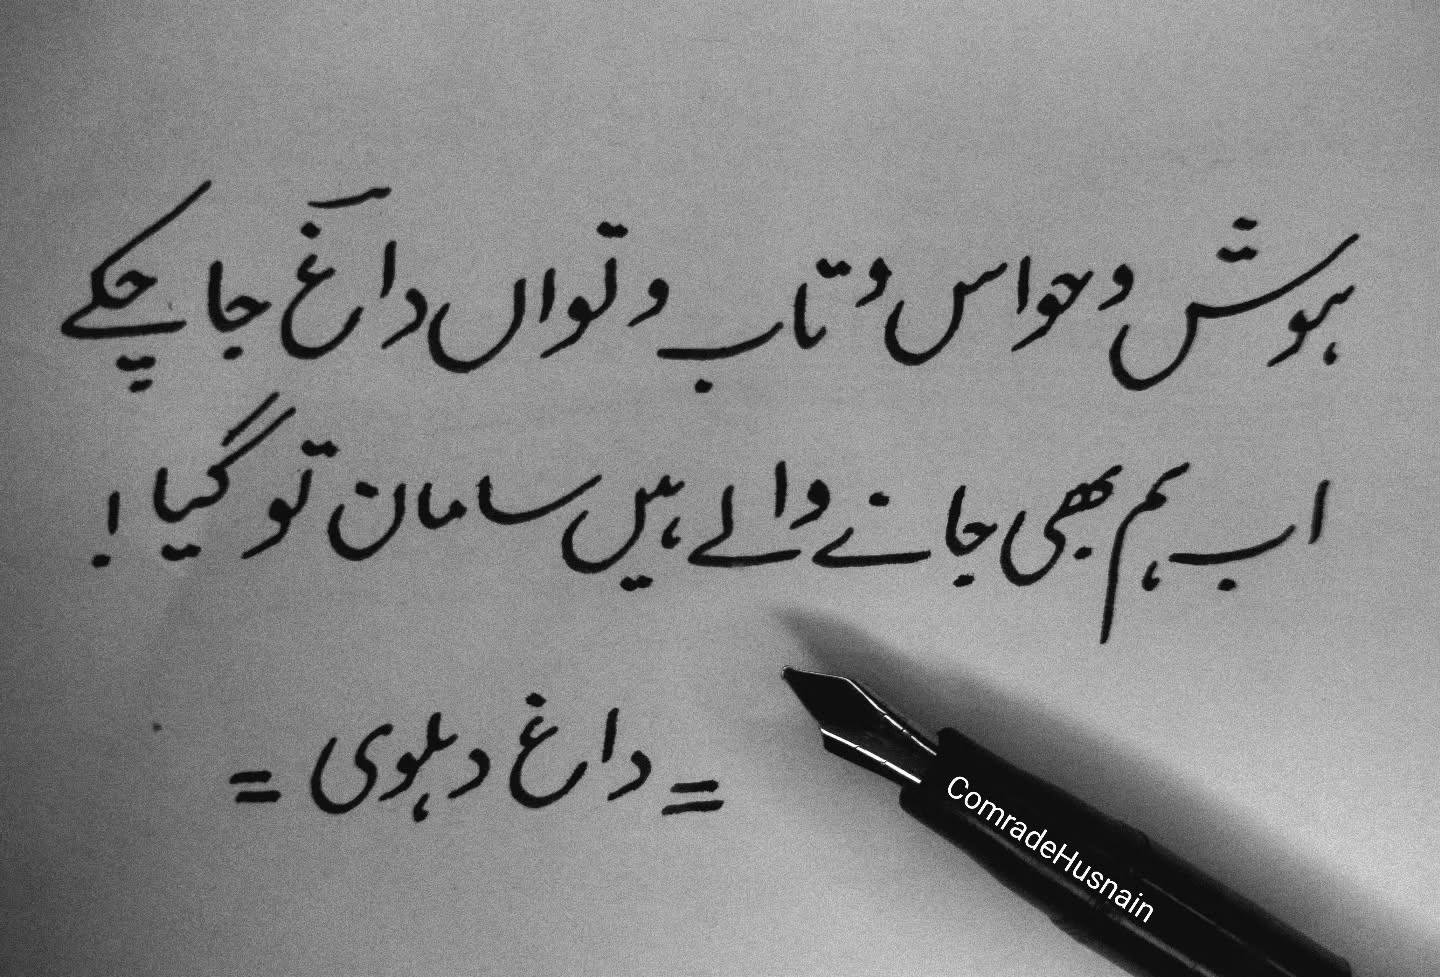 ہوش و حواس و تاب و تواں داغؔ جا چکے
اب ہم بھی جانے والے ہیں سامان تو گیا !
= داغ دہلوی =
ComradeHusnain